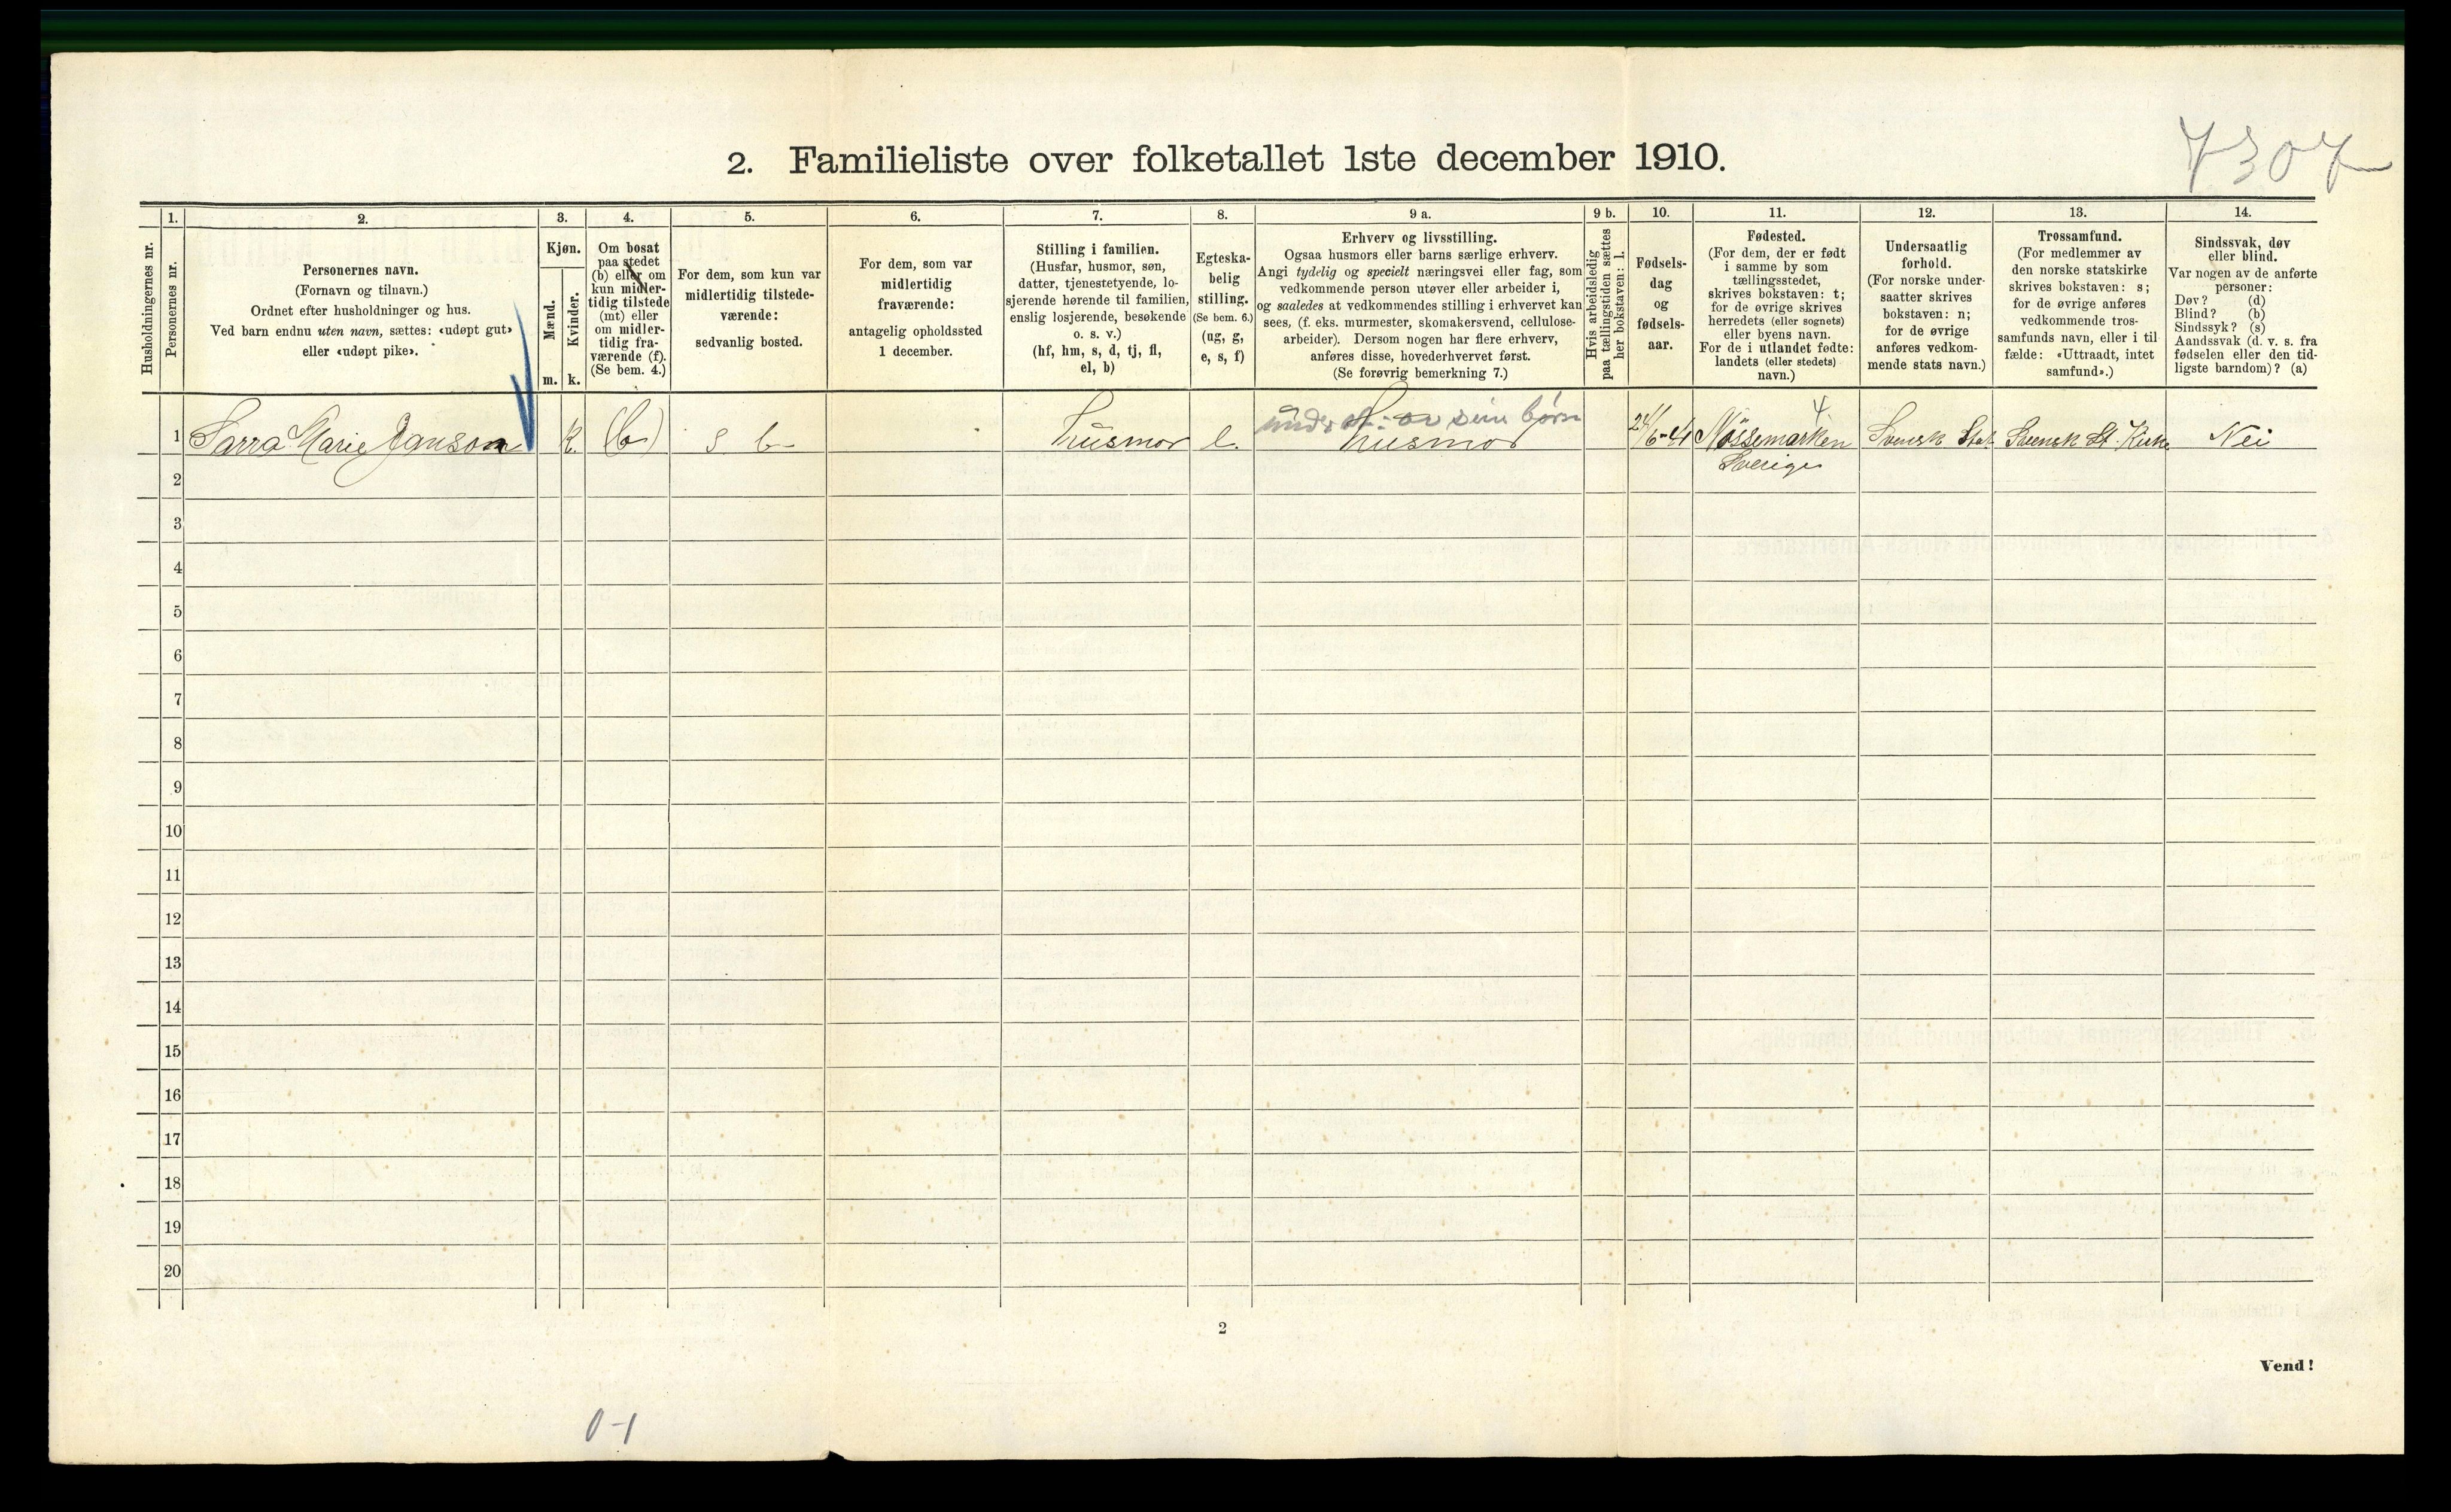 7307
2. Familieliste over folketallet 1ste december 1910.
Husholdningernes nr.
1.
Personernes nr.
2.
Personernes navn.
(Fornavn og tilnavn.)
Ordnet efter husholdninger og hus.
Ved barn endnu uten navn, sættes: «udøpt gut»
eller «udøpt pike».
3.
Kjøn.
Mænd.
Kvinder.
m. k.
4.
Om bosat
paa stedet
(b) eller om
kun midler-
tidig tilstede
(mt) eller
om midler-
tidig fra-
værende (f).
(Se bem. 4.)
5.
For dem, som kun var
midlertidig tilstede-
værende:
sedvanlig bosted.
6.
For dem, som var
midlertidig
fraværende:
antagelig opholdssted
1 december.
7.
Stilling i familien.
(Husfar, husmor, søn,
datter, tjenestetyende, lo-
sjerende hørende til familien,
enslig losjerende, besøkende
o. s. v.)
(hf, hm, s, d, tj, fl,
el, b)
8.
Egteska-
belig
stilling.
(Se bem. 6.)
(ug, g,
e, s, f)
9 a.
Erhverv og livsstilling.
Ogsaa husmors eller barns særlige erhverv.
Angi tydelig og specielt næringsvei eller fag, som
vedkommende person utøver eller arbeider i,
og saaledes at vedkommendes stilling i erhvervet kan
sees, (f. eks. murmester, skomakersvend, cellulose-
arbeider). Dersom nogen har flere erhverv,
anføres disse, hovederhvervet først.
(Se forøvrig bemerkning 7.)
9 b.
Hvis arbeidsledig
paa tællingstiden sættes
her bokstaven: l.
10.
Fødsels-
dag
og
fødsels-
aar.
11.
Fødested.
(For dem, der er født
i samme by som
tællingsstedet,
skrives bokstaven: t;
for de øvrige skrives
herredets (eller sognets)
eller byens navn.
For de i utlandet fødte:
landets (eller stedets)
navn.)
12.
Undersaatlig
forhold.
(For norske under-
saatter skrives
bokstaven: n;
for de øvrige
anføres vedkom-
mende stats navn.)
13.
Trossamfund.
(For medlemmer av
den norske statskirke
skrives bokstaven: s;
for de øvrige anføres
vedkommende tros-
samfunds navn, eller i til
fælde: «Uttraadt, intet
samfund».)
14.
Sindssvak, døv
eller blind.
Var nogen av de anførte
personer:
Døv? (d)
Blind? (b)
Sindssyk? (s)
Aandssvak (d. v. s. fra
fødselen eller den tid-
ligste barndom)? (a)
1 Sarra Marie Janson k. (b) s b Husmor e. underst. av sine børn Husmor 24/6-41 Nössemarken Svensk Stat. Svensk St. Kirke Nei
4
Sverige
2
3
4
5
6
7
8
9
10
11
12
13
14
15
16
17
18
19
20
2
Vend!
0-1